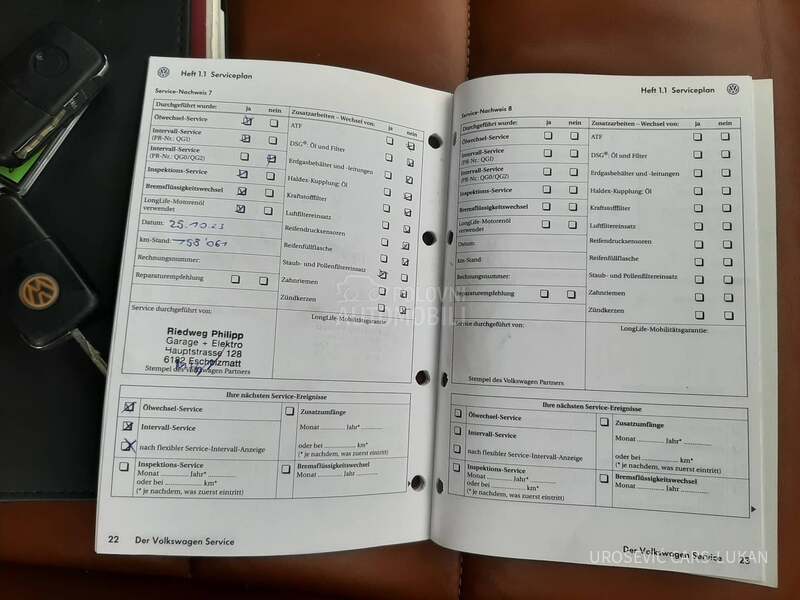 Heft 1.1 Serviceplan
Service-Nachweis 7
Durchgeführt wurde: ja nein
Ölwechsel-Service
Intervall-Service
(PR-Nr.: QG1)
Intervall-Service
(PR-Nr.: QG0/QG2)
Inspektions-Service
Bremsflüssigkeitswechsel
LongLife-Motorenöl
verwendet
Datum: 25.10.23
km-Stand: 155'061
Rechnungsnummer:
Reparaturempfehlung
Zusatzarbeiten – Wechsel von: ja nein
ATF
DSG®: Öl und Filter
Erdgasbehälter und -leitungen
Haldex-Kupplung: Öl
Kraftstofffilter
Luftfiltereinsatz
Reifendrucksensoren
Reifenfüllflasche
Staub- und Pollenfiltereinsatz
Zahnriemen
Zündkerzen
Service durchgeführt von:
Riedweg Philipp
Garage + Elektro
Hauptstrasse 128
6182 Escholzmatt
Stempel des Volkswagen Partners
LongLife-Mobilitätsgarantie:
Ihre nächsten Service-Ereignisse
Ölwechsel-Service
Intervall-Service
nach flexibler Service-Intervall-Anzeige
Inspektions-Service
Monat ........... Jahr*........
oder bei ........... km*
(* je nachdem, was zuerst eintritt)
Zusatzumfänge
Monat ........... Jahr*........
oder bei ........... km*
(* je nachdem, was zuerst eintritt)
Bremsflüssigkeitswechsel
Monat ........... Jahr..........
22 Der Volkswagen Service
Heft 1.1 Serviceplan
Service-Nachweis 8
Durchgeführt wurde: ja nein
Ölwechsel-Service
Intervall-Service
(PR-Nr.: QG1)
Intervall-Service
(PR-Nr.: QG0/QG2)
Inspektions-Service
Bremsflüssigkeitswechsel
LongLife-Motorenöl
verwendet
Datum:
km-Stand
Rechnungsnummer:
Reparaturempfehlung
Zusatzarbeiten – Wechsel von: ja nein
ATF
DSG®: Öl und Filter
Erdgasbehälter und -leitungen
Haldex-Kupplung: Öl
Kraftstofffilter
Luftfiltereinsatz
Reifendrucksensoren
Reifenfüllflasche
Staub- und Pollenfiltereinsatz
Zahnriemen
Zündkerzen
Service durchgeführt von:
Stempel des Volkswagen Partners
LongLife-Mobilitätsgarantie:
Ihre nächsten Service-Ereignisse
Ölwechsel-Service
Intervall-Service
nach flexibler Service-Intervall-Anzeige
Inspektions-Service
Monat ........... Jahr*........
oder bei ........... km*
(* je nachdem, was zuerst eintritt)
Zusatzumfänge
Monat ........... Jahr*........
oder bei ........... km*
(* je nachdem, was zuerst eintritt)
Bremsflüssigkeitswechsel
Monat ........... Jahr..........
Der Volkswagen Service 23
POLOVNI
AUTOMOBILI
UROSEVIC CARS-LUKAN